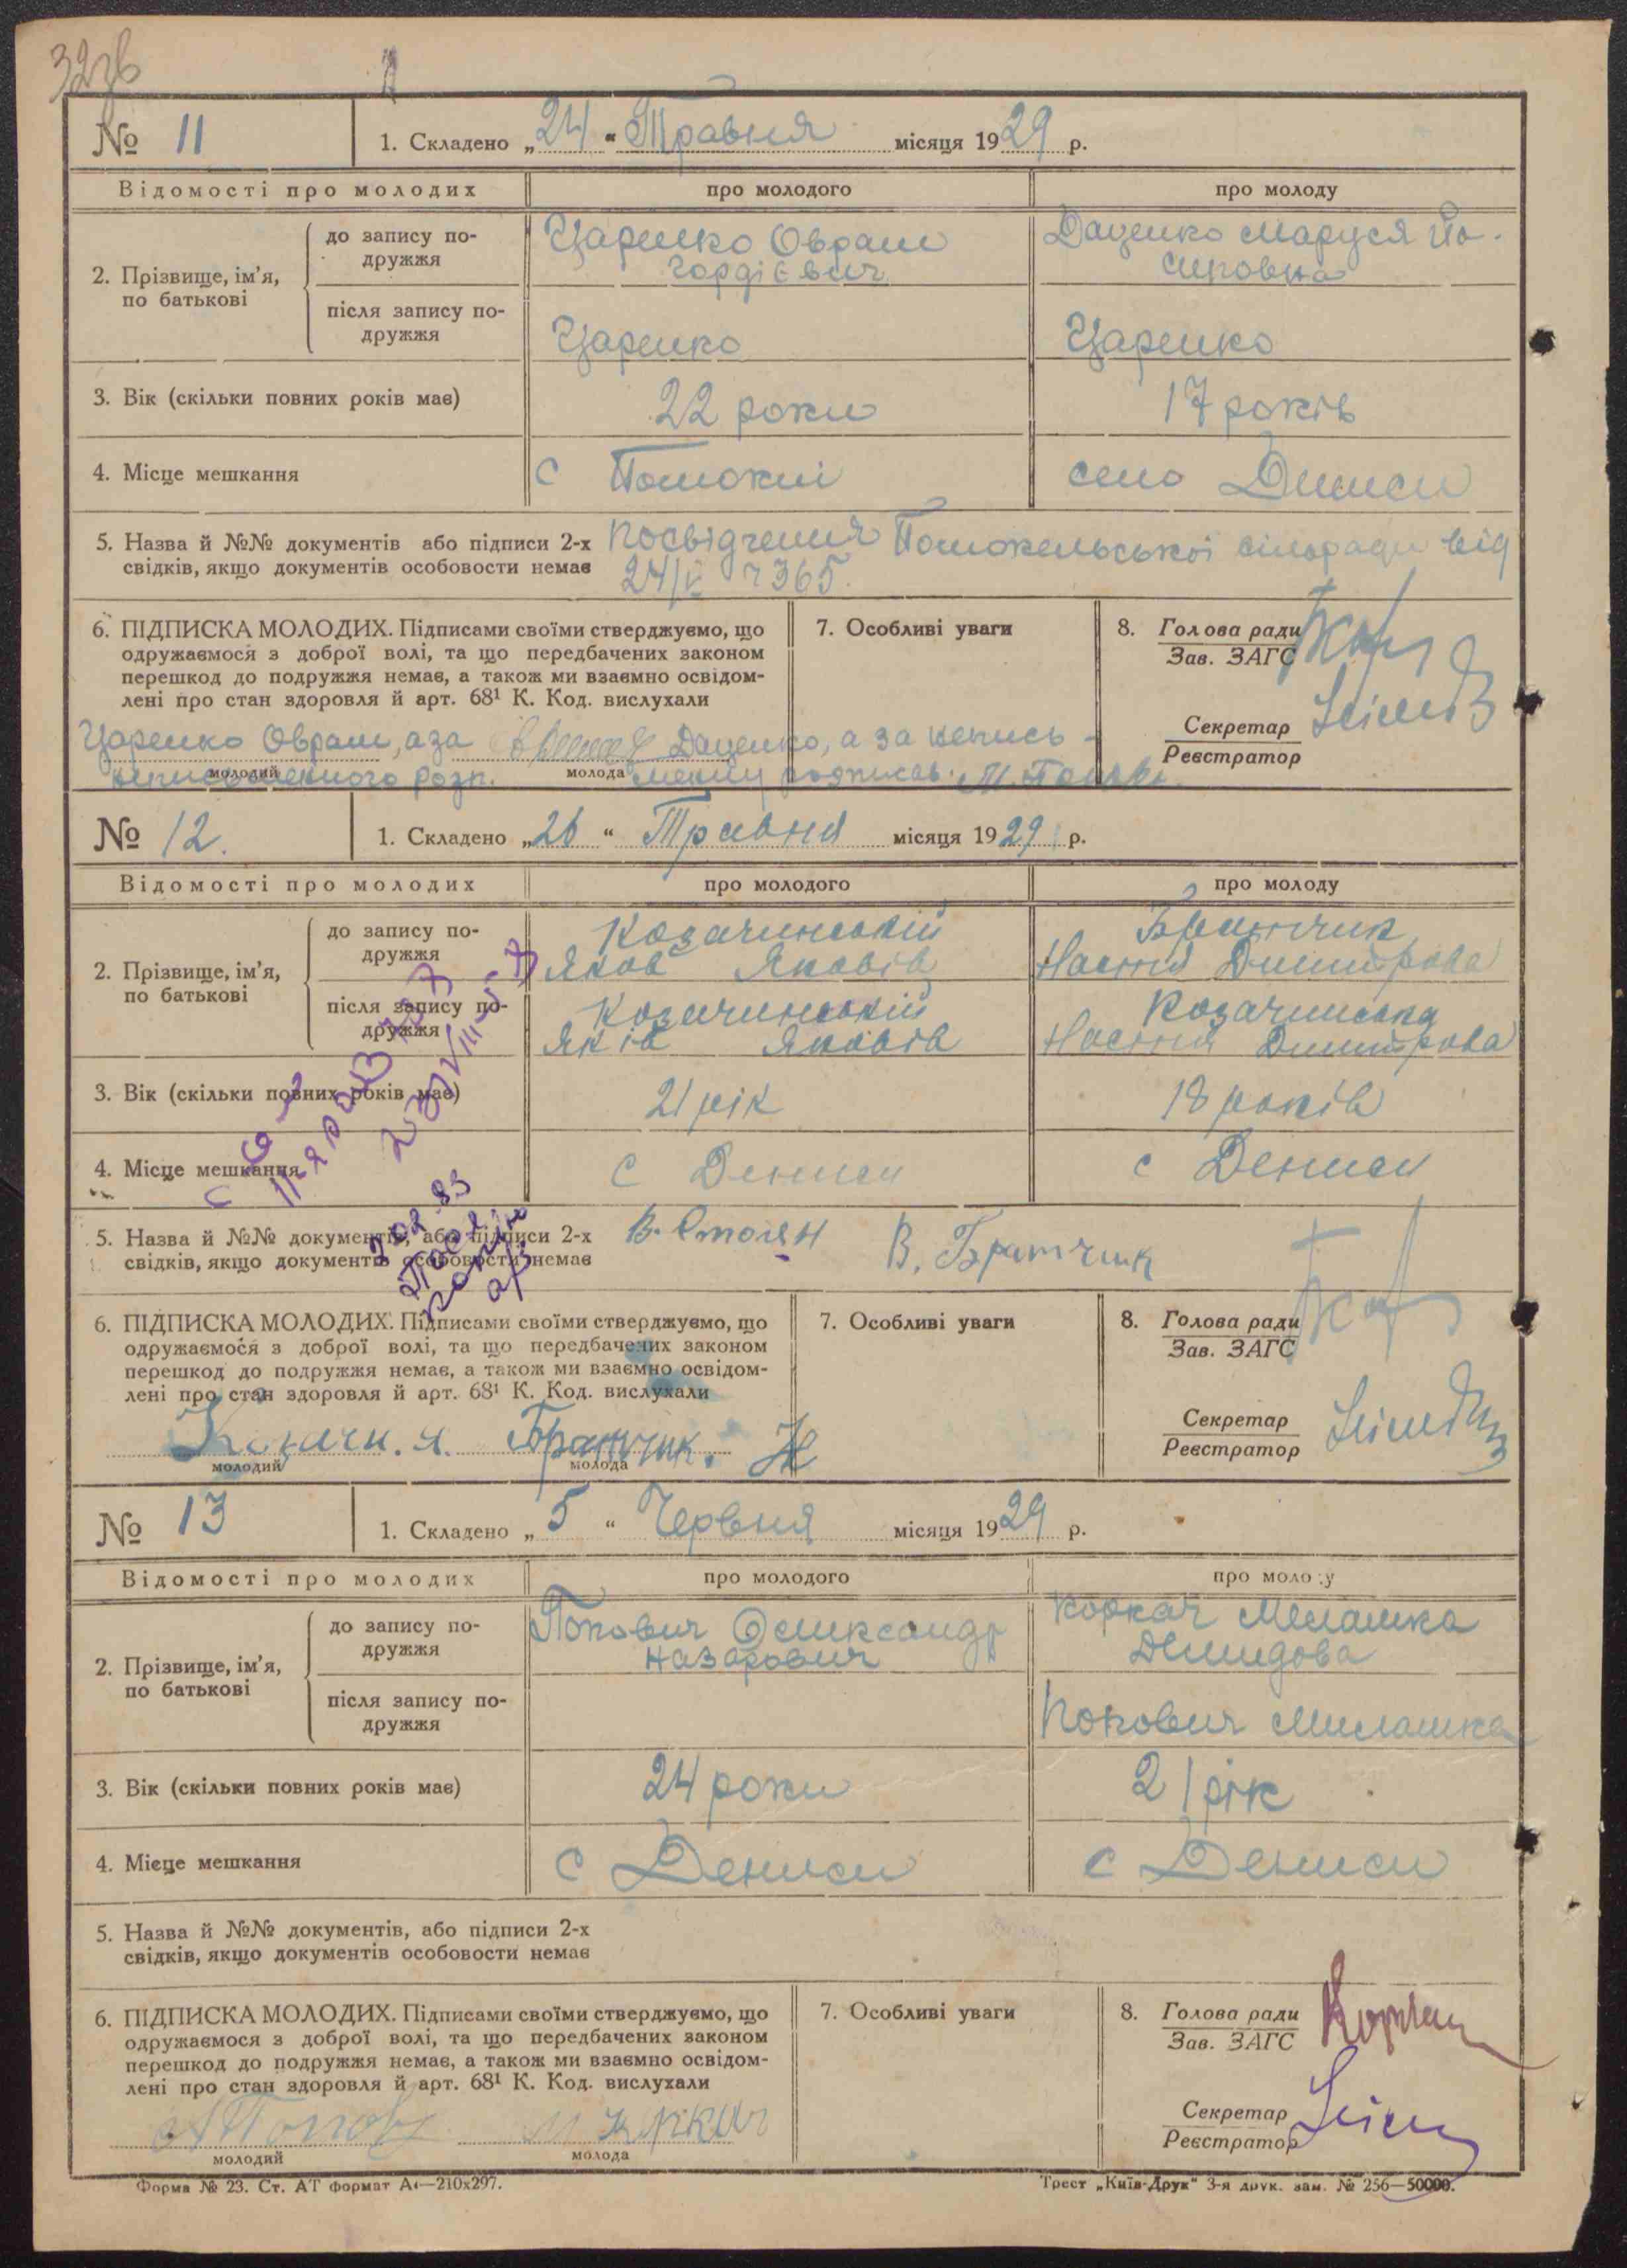 32зв
№ 11
1. Складено „24“ Травня місяця 1929 р.
Відомості про молодих
про молодого
про молоду
2. Прізвище, ім’я, по батькові
до запису подружжя
Царенко Овраам
Гордієвич
Даценко Маруся Йо-
сиповна
після запису подружжя
Царенко
Царенко
3. Вік (скільки повних років має)
22 роки
17 років
4. Місце мешкання
с Помоклі
село Дениси
5. Назва й №№ документів або підписи 2-х
свідків, якщо документів особовости немає
Посвідчення Помокельської сільради від
24/V 365.
6. ПІДПИСКА МОЛОДИХ. Підписами своїми стверджуємо, що
одружаємося з доброї волі, та що передбачених законом
перешкод до подружжя немає, а також ми взаємно освідом-
лені про стан здоровля й арт. 68¹ К. Код. вислухали
Царенко Овраам, а за Даценко, а за непись-
неписьменного розп.
менну подписав
молодий
молода
7. Особливі уваги
8. Голова ради
Зав. ЗАГС
Секретар
Реєстратор
№ 12.
1. Складено „26“ Травня місяця 1929 р.
Відомості про молодих
про молодого
про молоду
2. Прізвище, ім’я, по батькові
до запису подружжя
Козачинський
Яков Яковів
Братчик
Настя Дмитрова
після запису подружжя
Козачинський
Яків Яковів
Козачинська
Настя Дмитрова
3. Вік (скільки повних років має)
21 рік
18 років
4. Місце мешкання
с Дениси
с Дениси
5. Назва й №№ документів, або підписи 2-х
свідків, якщо документів особовости немає
В. Стоян В. Братчик
6. ПІДПИСКА МОЛОДИХ. Підписами своїми стверджуємо, що
одружаємося з доброї волі, та що передбачених законом
перешкод до подружжя немає, а також ми взаємно освідом-
лені про стан здоровля й арт. 68¹ К. Код. вислухали
Козачи. Я. Братчик. Н
молодий
молода
7. Особливі уваги
8. Голова ради
Зав. ЗАГС
Секретар
Реєстратор
№ 13
1. Складено „5“ Червня місяця 1929 р.
Відомості про молодих
про молодого
про молоду
2. Прізвище, ім’я, по батькові
до запису подружжя
Попович Олександр
Назарович
Коркач Мелашка
Демидова
після запису подружжя
Попович Милашка
3. Вік (скільки повних років має)
24 роки
21 рік
4. Місце мешкання
с Дениси
с Дениси
5. Назва й №№ документів, або підписи 2-х
свідків, якщо документів особовости немає
6. ПІДПИСКА МОЛОДИХ. Підписами своїми стверджуємо, що
одружаємося з доброї волі, та що передбачених законом
перешкод до подружжя немає, а також ми взаємно освідом-
лені про стан здоровля й арт. 68¹ К. Код. вислухали
А Попов М Коркач
молодий
молода
7. Особливі уваги
8. Голова ради
Зав. ЗАГС
Секретар
Реєстратор
Форма № 23. Ст. АТ формат А4—210х297.
Трест „Київ-Друк“ 3-я друк. зам. № 256—50000.